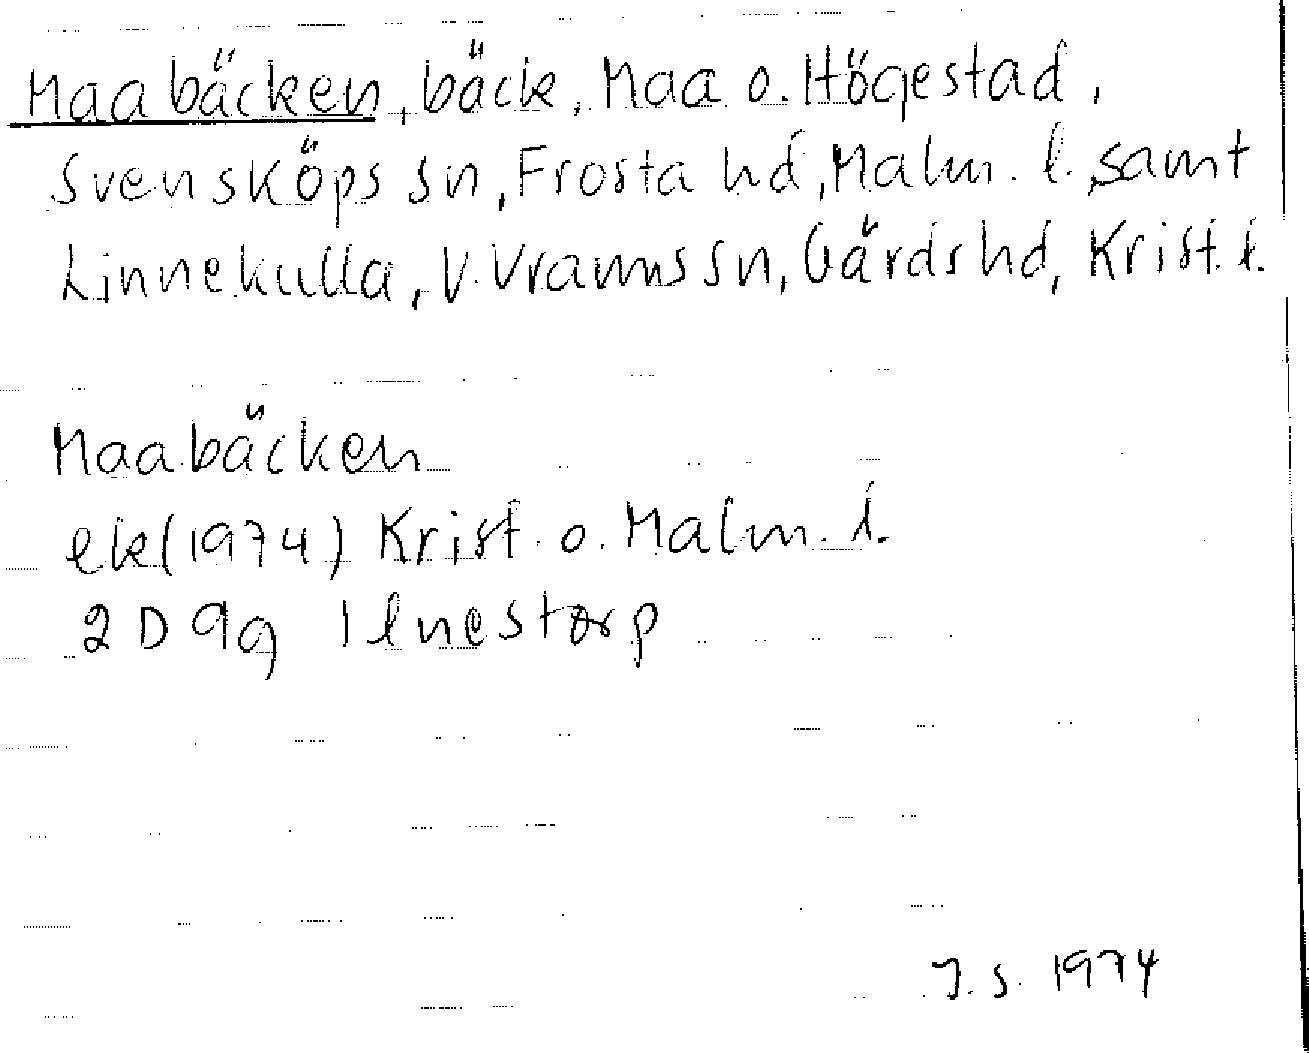 Maabäcken, bäck, Maa o. Högestad,
Svensköps sn, Frosta hd, Malm. l. samt
Linnekulla, V. Vrams sn, Gärds hd, Krist. l.
Maabäcken
ek (1974) Krist. o. Malm. l.
2 D 9g Ilnestorp
J. S. 1974